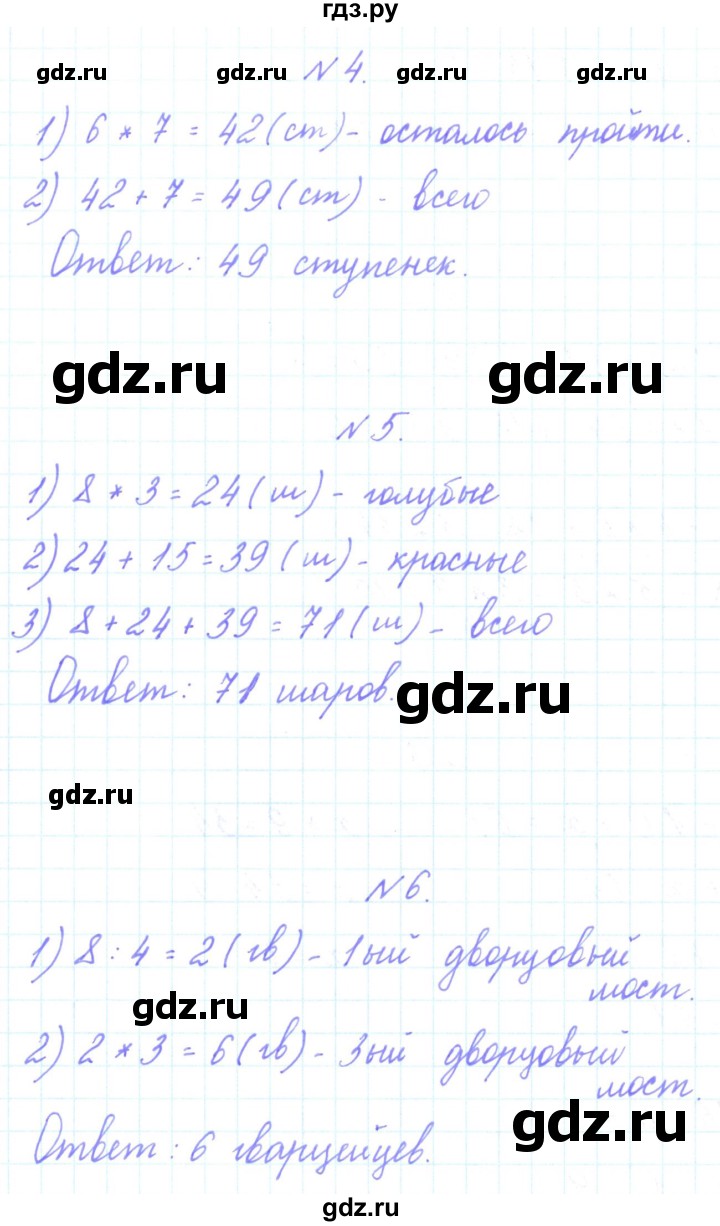 гдз.ру
gdz.ru gdz.ru gdz.ru gdz.ru
№ 4.
1) 6 * 7 = 42 (ст) - осталось пройти.
2) 42 + 7 = 49 (ст) - всего
Ответ: 49 ступенек.
gdz.ru gdz.ru
№ 5.
1) 8 * 3 = 24 (ш) - голубые
2) 24 + 15 = 39 (ш) - красные
3) 8 + 24 + 39 = 71 (ш) - всего
Ответ: 71 шаров.
gdz.ru
gdz.ru
№ 6.
1) 8 : 4 = 2 (гв) - 1ый дворцовый
мост.
gdz.ru
2) 2 * 3 = 6 (гв) - 3ый дворцовый
мост.
gdz.ru
Ответ: 6 гварцейцев.
gdz.ru